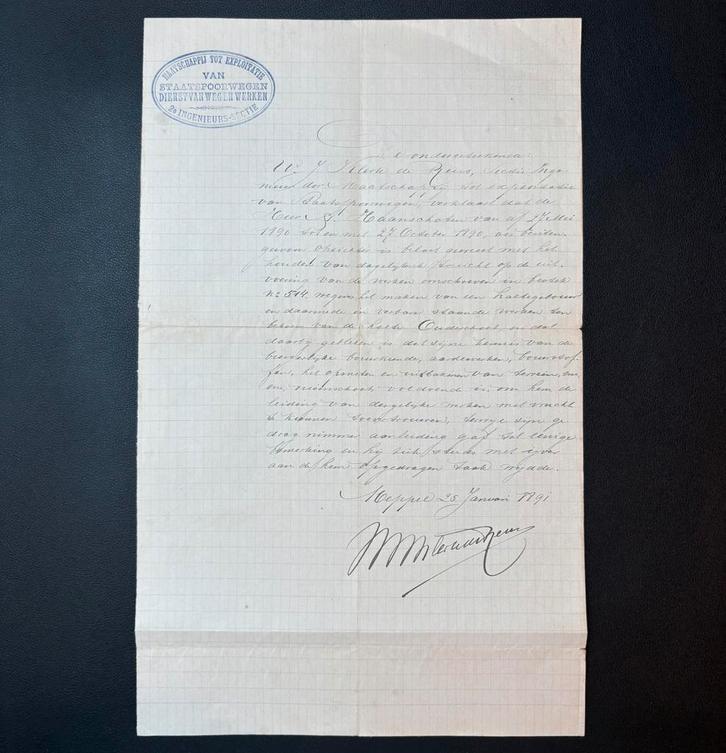 MAATSCHAPPIJ TOT EXPLOITATIE
VAN
STAATSPOORWEGEN
DIENST VAN WEG EN WERKEN
2e INGENIEURS-SECTIE
De ondergeteekende
W. J. de Sectie Inge
nieur der Maatschappij tot exploitatie
van Staatsspoorwegen, verklaart dat de
Heer J. Haanschoten van af 17 Mei
1890 tot en met 27 October 1890, als
opzichter is belast geweest met het
houden van dagelijksch toezicht op de uit-
voering van de werken omschreven in bestek
No 514 wegens het maken van een haltegebouw
en daarmede in verband staande werken ten
behoeve van de halte en dat
daarbij gebleken is dat zijne kennis van de
burgerlijke bouwkunde, aardewerken, bouwstof
fen, het opmeten en uitbakenen van terrein, enz
enz, voldoende is om hem de
leiding van dergelijke werken met vrucht
te kunnen toevertrouwen, terwijl zijn ge
drag nimmer aanleiding gaf tot eenige
bemerking en hij zich steeds met ijver
aan de hem opgedragen taak wijdde.
Meppel 25 Januari 1891